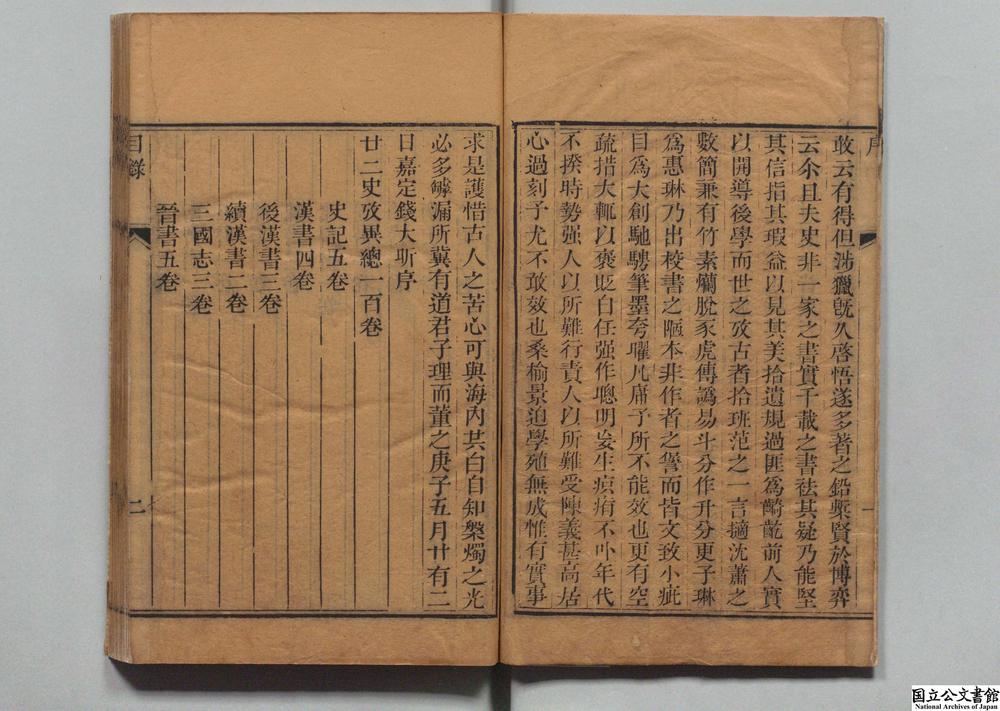 序
敢云有得但涉獵既久啓悟遂多著之鉛槧賢於博弈
云尒且夫史非一家之書實千載之書祛其疑乃能堅
其信指其瑕益以見其美拾遺規過匪爲齮齕前人實
以開導後學而世之攷古者拾班范之一言擿沈蕭之
數簡兼有竹素爛脫豕虎傳譌易斗分作升分更子琳
爲惠琳乃出校書之陋本非作者之諐而皆文致小疵
目爲大創馳騁筆墨夸曜凡庸予所不能效也更有空
疏措大輒以褒貶自任强作聰明妄生疻痏不卟年代
不揆時勢强人以所難行責人以所難受陳義甚高居
心過刻予尤不敢效也桑榆景迫學殖無成惟有實事
一
求是護惜古人之苦心可與海內共白自知槃燭之光
必多罅漏所冀有道君子理而董之庚子五月廿有二
日嘉定錢大昕序
廿二史攷異總一百卷
史記五卷
漢書四卷
後漢書三卷
續漢書二卷
三國志三卷
晉書五卷
目錄
二
国立公文書館
National Archives of Japan